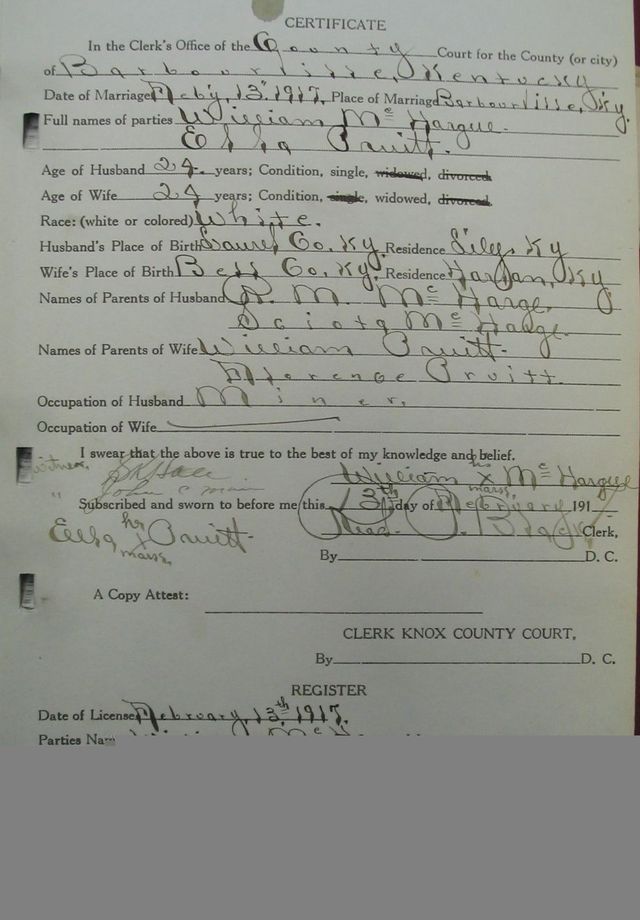 CERTIFICATE
In the Clerk's Office of the County Court for the County (or city)
of Barbourville, Kentucky
Date of Marriage Feb'y, 13th 1917, Place of Marriage Barbourville, Ky.
Full names of parties William Mc Hargue.
Ella Pruitt.
Age of Husband 24. years; Condition, single, widowed, divorced
Age of Wife 24 years; Condition, single, widowed, divorced
Race: (white or colored) White.
Husband's Place of Birth Laurel Co. Ky. Residence Lily, Ky
Wife's Place of Birth Bell Co. Ky. Residence Harlan, Ky
Names of Parents of Husband R. M. Mc Harge,
Sciota Mc Harge.
Names of Parents of Wife William Pruitt
Florence Pruitt.
Occupation of Husband Miner,
Occupation of Wife
I swear that the above is true to the best of my knowledge and belief.
witness, William his x mark, Mc Hargue
John C
Subscribed and sworn to before me this 13th day of February 191
Ella her x mark, Pruitt Clerk,
By D. C.
A Copy Attest:
CLERK KNOX COUNTY COURT,
By D. C.
REGISTER
Date of License February, 13th 1917,
Parties Nam